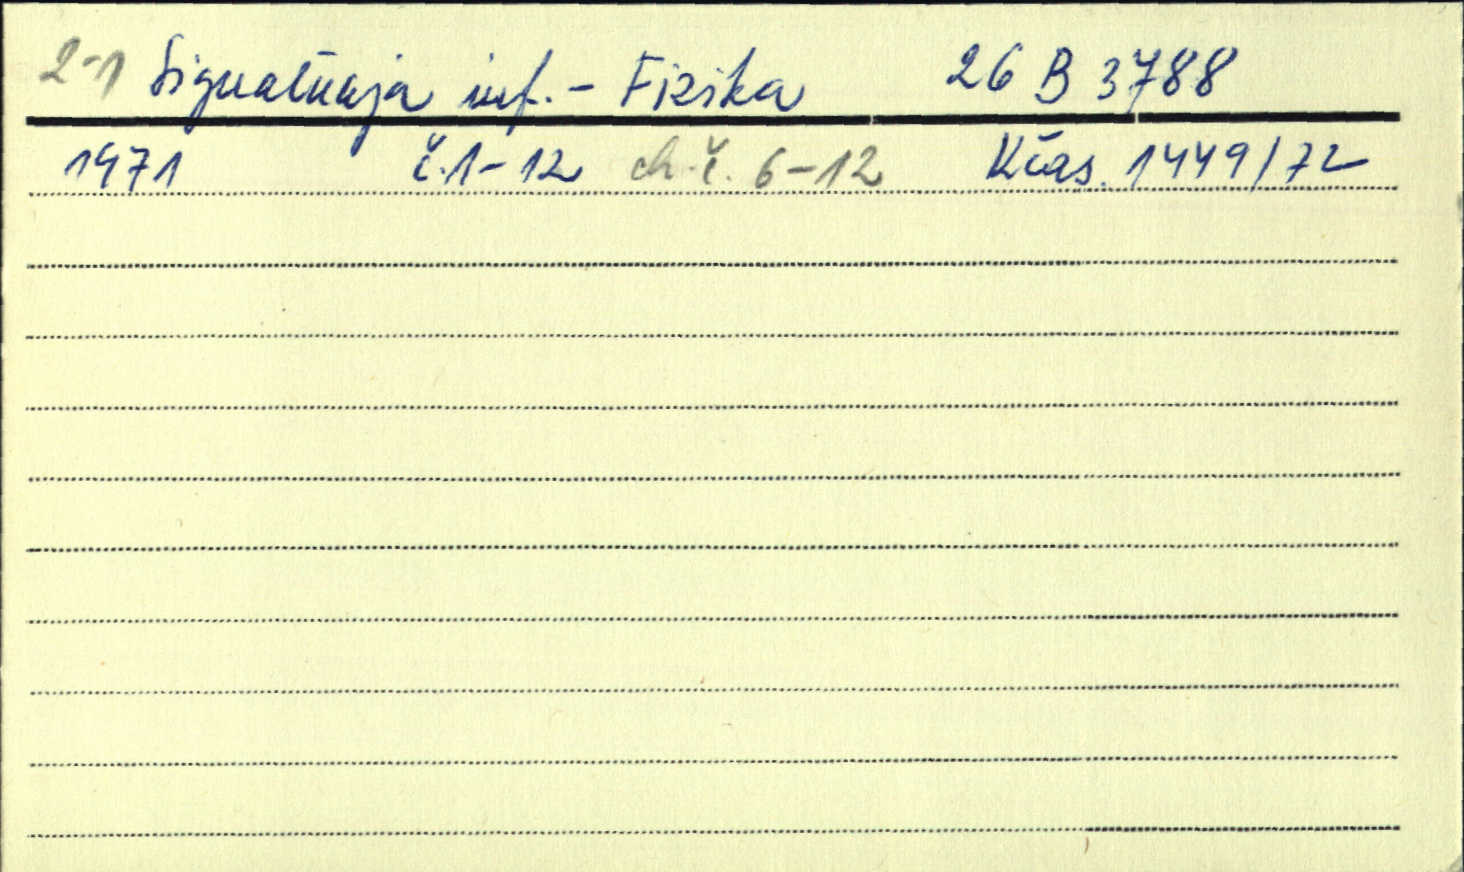 2-1 Signalnaja inf. - Fizika 26 B 3788
1971 č. 1-12 ch. č. 6-12 Kčas. 1449/72